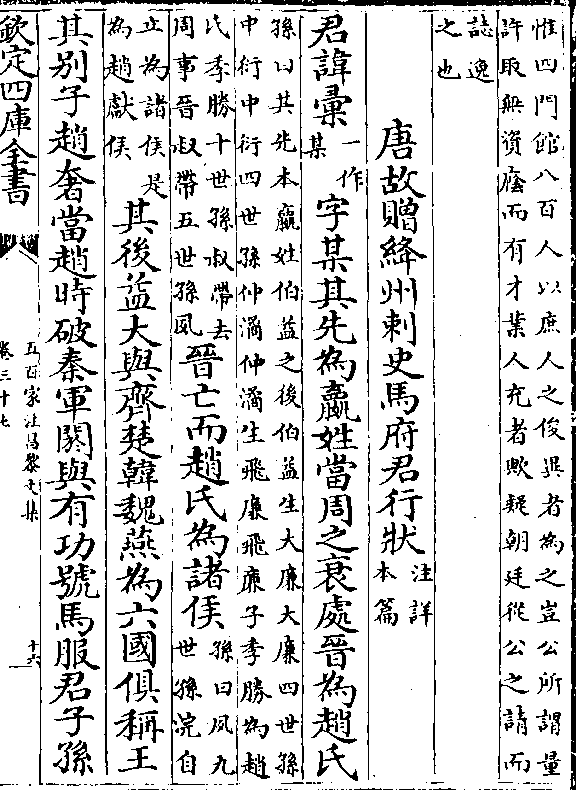 惟四門館八百人以庶人之俊異者為之豈公所謂量
許取無資廕而有才業人充者歟疑朝廷從公之請而
誌逸
之也
唐故贈絳州刺史馬府君行狀注詳
本篇
君諱彙一作
某字某其先為嬴姓當周之衰處晉為趙氏
孫曰其先本嬴姓伯益之後伯益生大廉大廉四世孫
中衍中衍四世孫仲潏仲潏生飛廉飛廉子季勝為趙
氏季勝十世孫叔帶去
周事晉叔帶五世孫夙晉亡而趙氏為諸侯孫曰夙九
世孫浣自
立為諸侯是
為趙獻侯其後益大與齊楚韓魏燕為六國俱稱王
其别子趙奢當趙時破秦軍閼與有功號馬服君子孫
欽定四庫全書
五百家注昌黎文集
卷三十七
十六